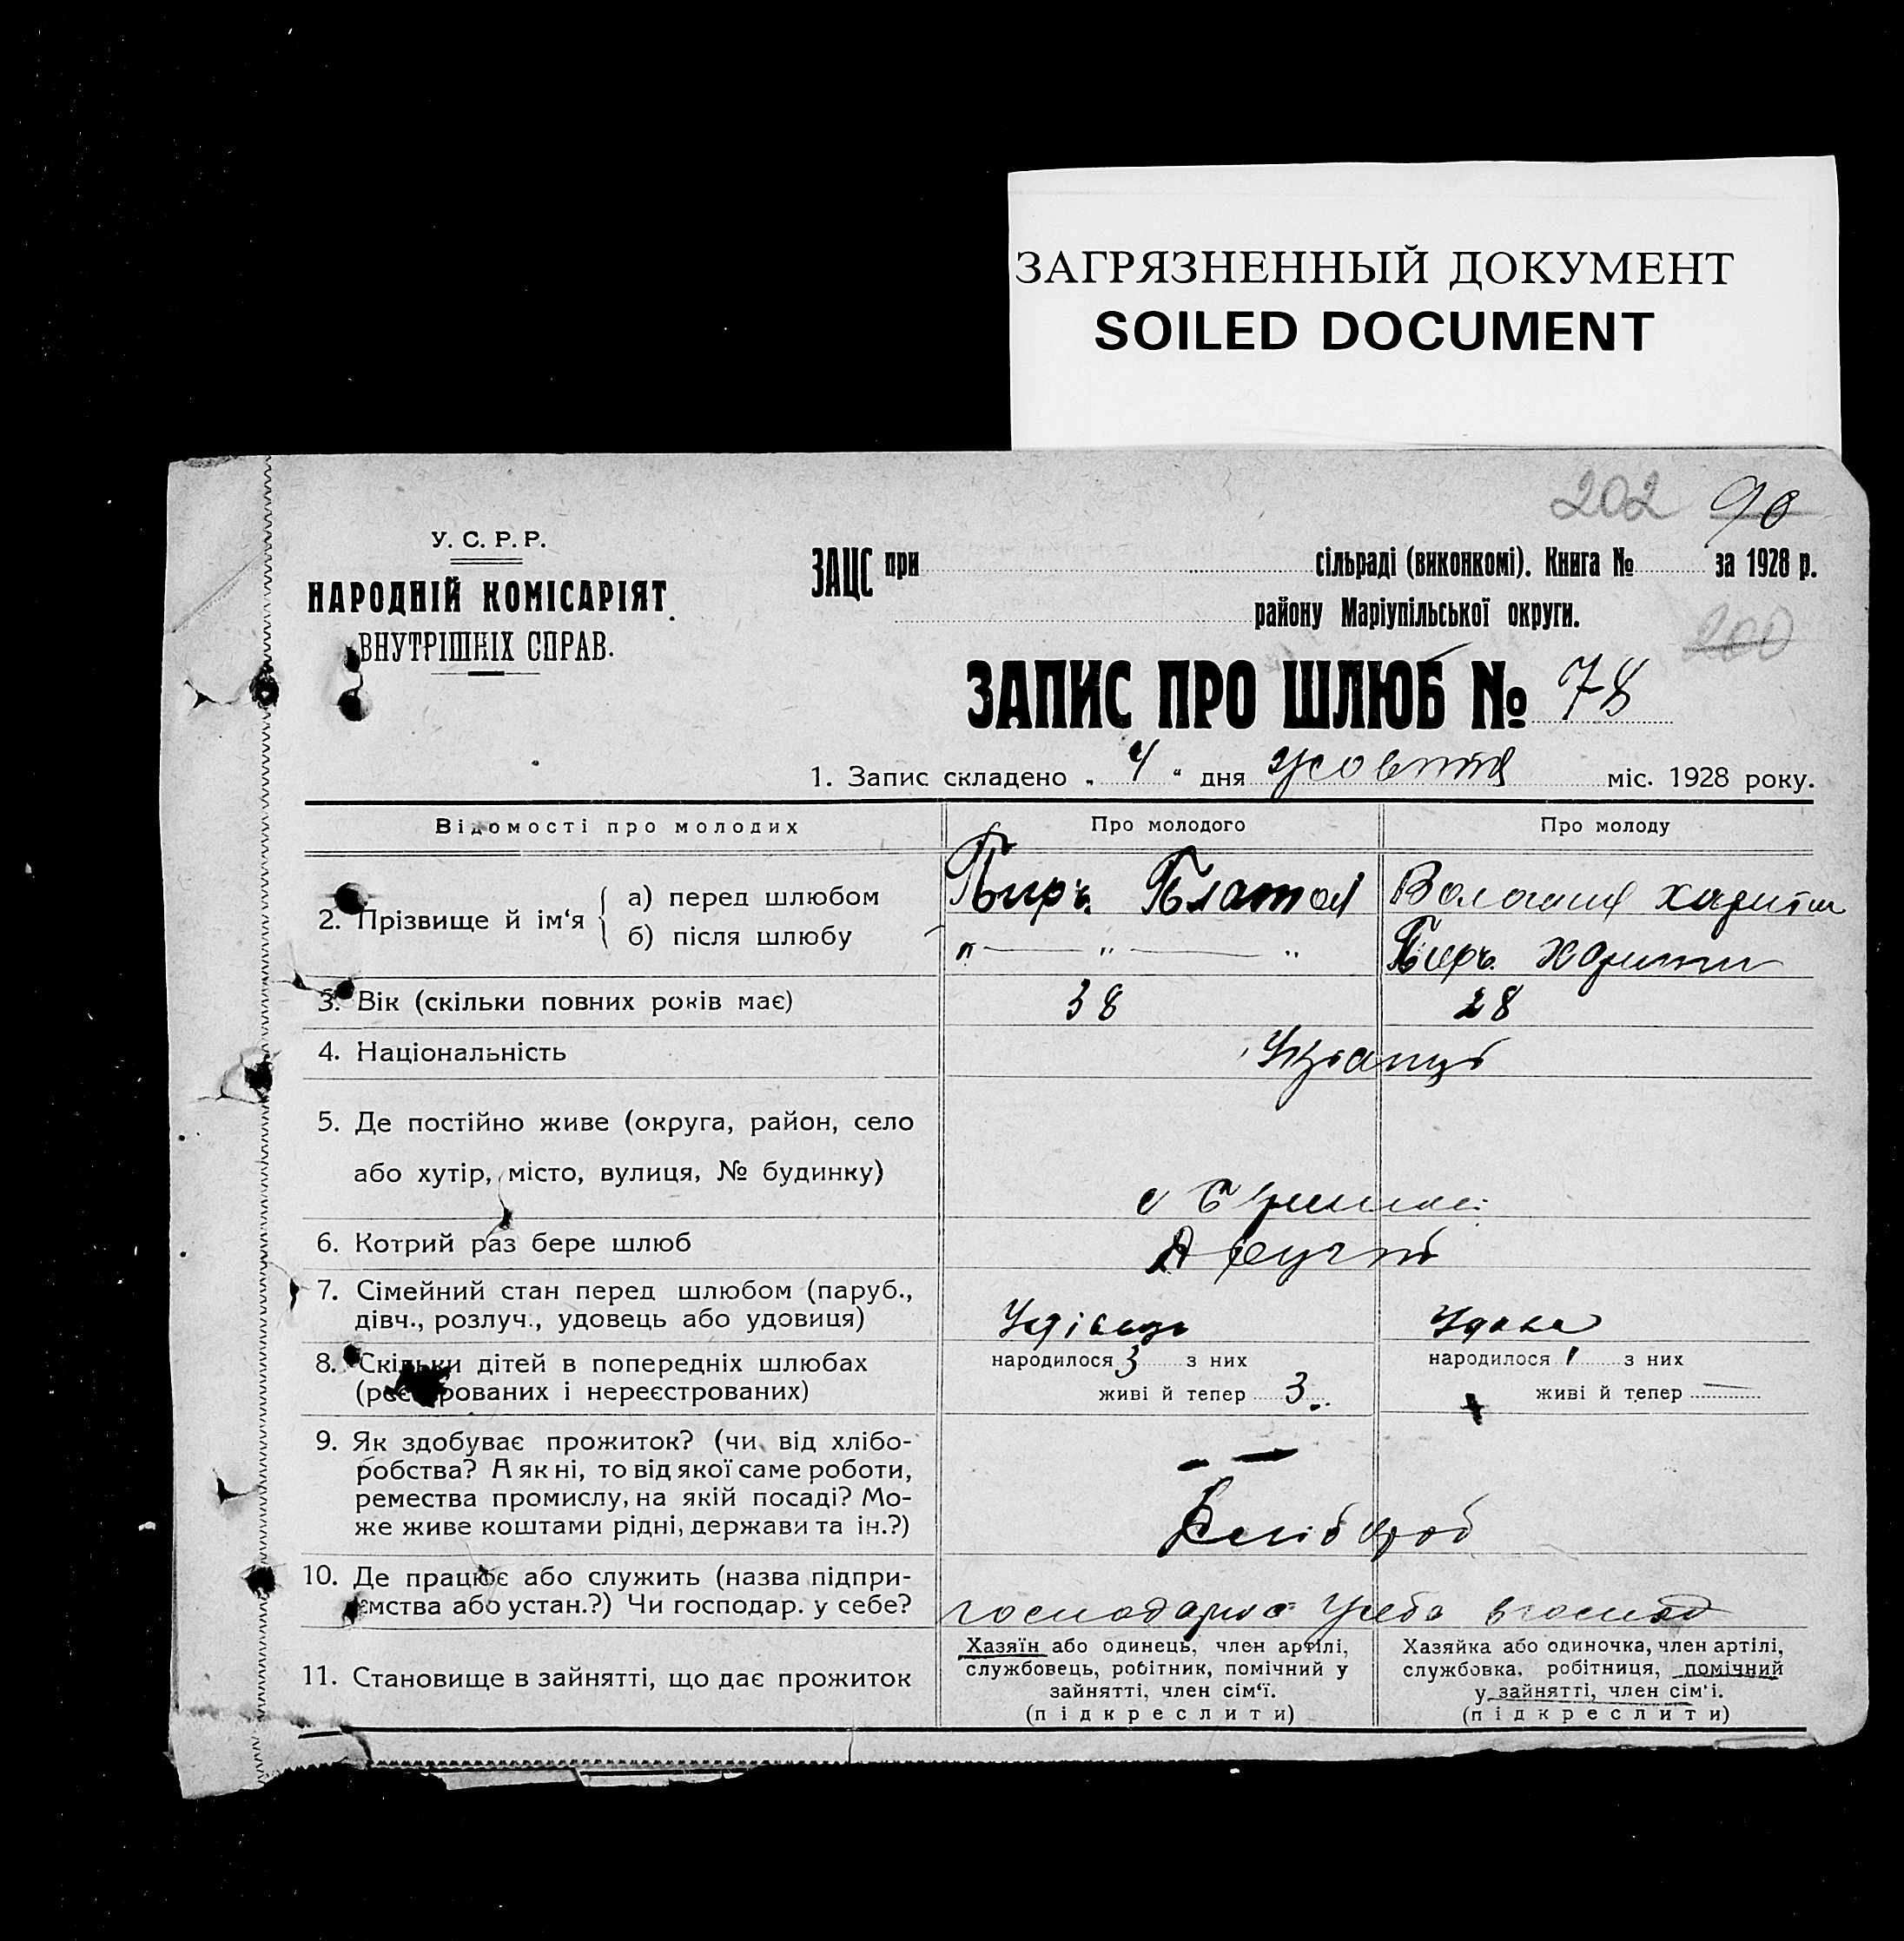 ЗАГРЯЗНЕННЫЙ ДОКУМЕНТ
SOILED DOCUMENT
202 90
У. С. Р. Р.
НАРОДНІЙ КОМІСАРІЯТ
ВНУТРІШНІХ СПРАВ.
ЗАЦС при сільраді (виконкомі). Книга № за 1928 р.
району Маріупільської округи.
200
ЗАПИС ПРО ШЛЮБ № 78
1. Запис складено „ 4 “ дня жовтня міс. 1928 року.
Відомості про молодих
Про молодого
Про молоду
2. Прізвище й ім‘я
а) перед шлюбом
б) після шлюбу
Пиръ Платон
" — " — "
Харитин
Пиръ Харитин
3. Вік (скільки повних років має)
38
28
4. Національність
Українці
5. Де постійно живе (округа, район, село
або хутір, місто, вулиця, № будинку)
с
6. Котрий раз бере шлюб
Другий
7. Сімейний стан перед шлюбом (паруб.,
дівч., розлуч., удовець або удовиця)
Удівець
Удова
8. Скільки дітей в попередніх шлюбах
(реєстрованих і нереєстрованих)
народилося 3 з них
живі й тепер 3
народилося 1 з них
живі й тепер —
9. Як здобуває прожиток? (чи від хлібо-
робства? А як ні, то від якої саме роботи,
ремества промислу, на якій посаді? Мо-
же живе коштами рідні, держави та ін.?)
Хлібороб
10. Де працює або служить (назва підпри-
ємства або устан.?) Чи господар. у себе?
господарює у себе в господ
11. Становище в зайнятті, що дає прожиток
Хазяїн або одинець, член артілі,
службовець, робітник, помічний у
зайнятті, член сім‘ї.
(підкреслити)
Хазяйка або одиночка, член артілі,
службовка, робітниця, помічний
у зайнятті, член сім‘і.
(підкреслити)